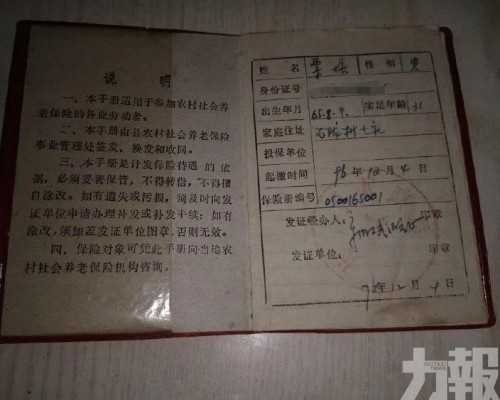 说 明
一、本手册适用于参加农村社会养
老保险的各业劳动者。
二、本手册由县农村社会养老保险
事业管理处签发、换发和收回。
三、本手册是计发保险待遇的依
据,必须妥善保管,不得转借,不得擅
自涂改。如有遗失或污损,须及时向发
证单位申请办理补发或扑发手续;如有
涂改,须加盖发证单位图章,否则无效。
四、保险对象可凭此手册向当地农
村社会养老保险机构咨询。
姓 名 性 别 男
身份证号
出生年月 65.8.9. 实足年龄 31
家庭住址
投保单位
起缴时间 96年12月4日
保险册编号 0500165001
发证经办人: 印章
发证单位: 印章
96年12月4日
力報